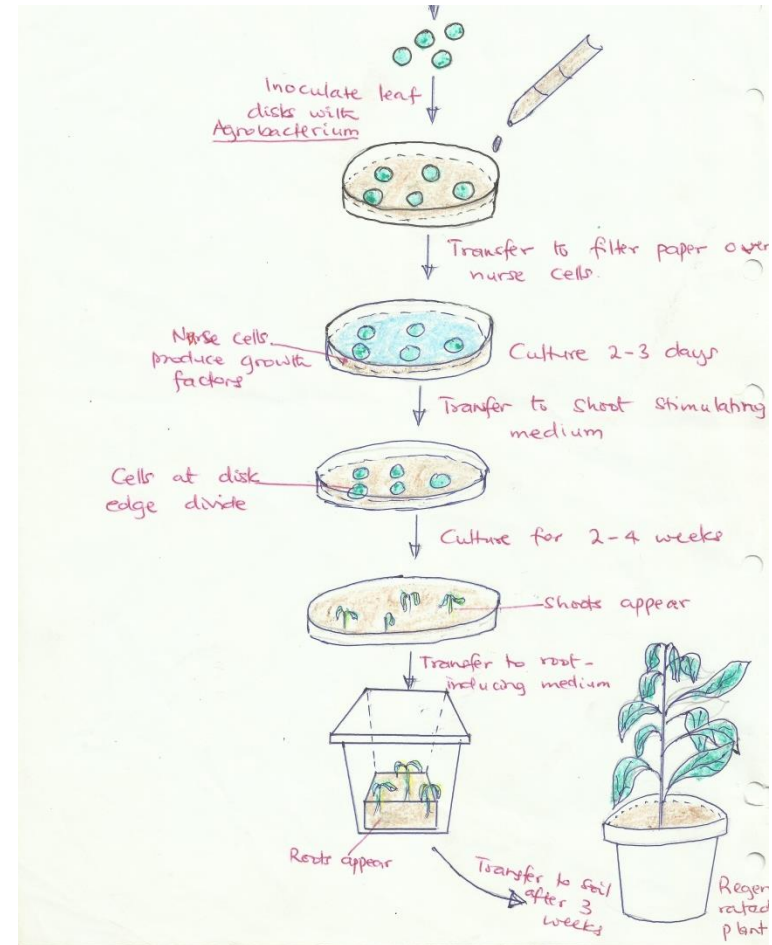 Inoculate leaf
disks with
Agrobacterium
Transfer to filter paper over
nurse cells.
Nurse cells
produce growth
factors
Culture 2-3 days
Transfer to shoot stimulating
medium
Cells at disk
edge divide
Culture for 2-4 weeks
Shoots appear
Transfer to root-
inducing medium
Roots appear
Transfer to soil
after 3
weeks
Regen
rated
plant